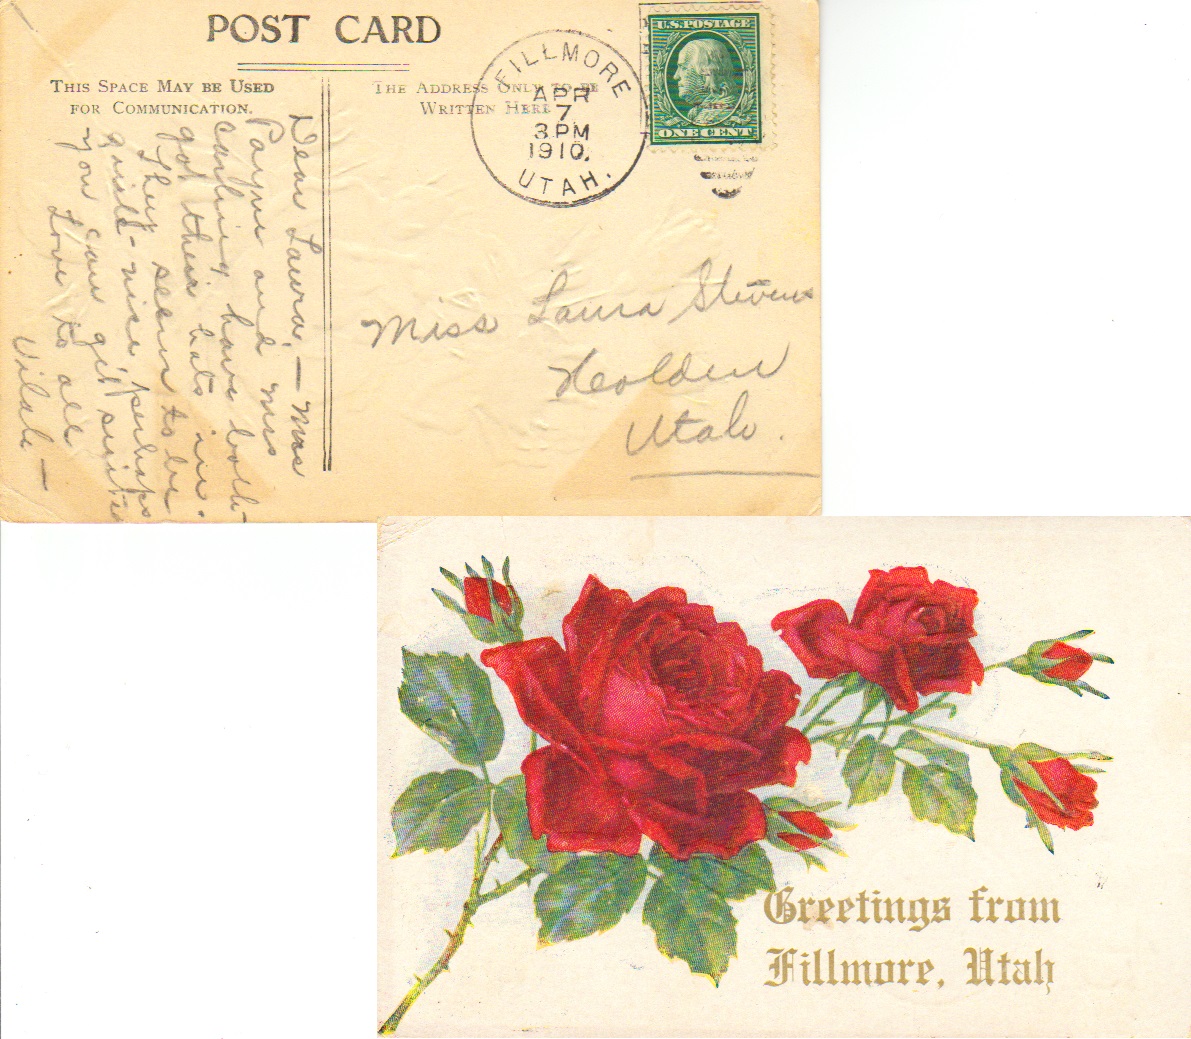 POST CARD
THIS SPACE MAY BE USED
FOR COMMUNICATION.
THE ADDRESS ONLY TO BE
WRITTEN HERE
FILLMORE
APR
7
3 PM
1910.
UTAH.
U.S. POSTAGE
ONE CENT
Dear Laura, — Mrs
Payne and Mrs
Carling have both
got their hats in.
They seem to be
quite nice, perhaps
you can get suited
Love to all
Vilate —
Miss Laura Stevens
Holden
Utah.
Greetings from
Fillmore, Utah